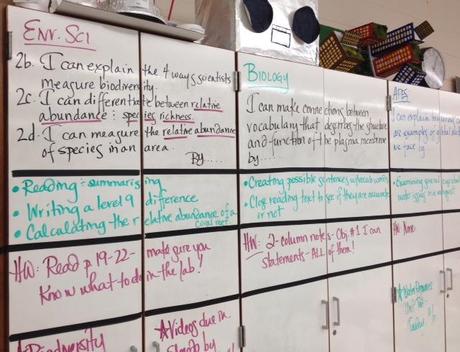 Env. Sci
2b. I can explain the 4 ways scientists
measure biodiversity.
2c. I can differentiate between relative
abundance & species richness.
2d. I can measure the relative abundance
of species in an area.
By.....
• Reading = summarising
• Writing a level 9 difference
• Calculating the relative abundance of a
coral reef.
HW: Read p. 19-22- make sure you
Know what to do in the lab!
Biodiversity
* Videos due in
by
Biology
I can make connections between
vocabulary that describes the structure
and function of the plasma membrane
by....
• Creating possible sentences w/vocab words
• Close reading text to see if they are accurate
or not.
HW: 2-column notes- Obj #1 I can
statements- ALL of them!
APES
I can explain
are examples of
we face by
• Examining
HW: None